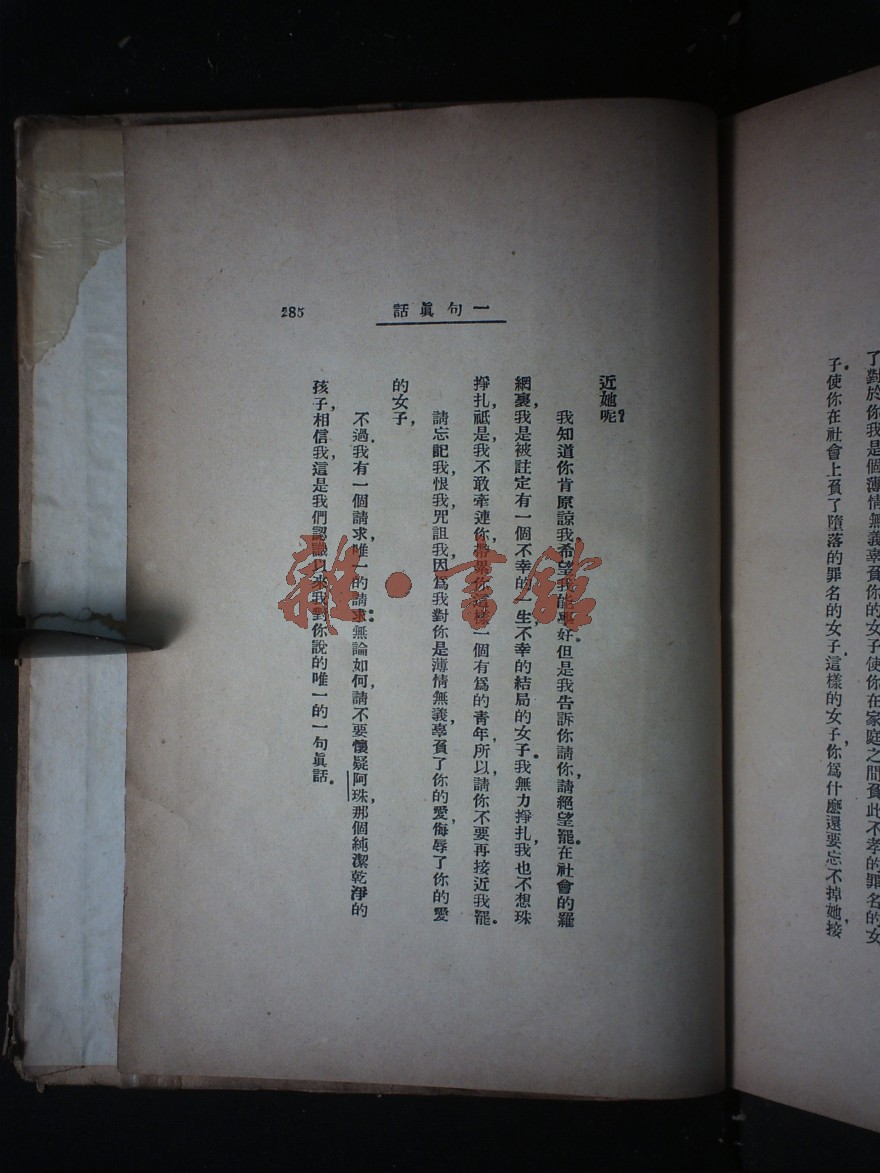 了對於你我是個薄情無義辜負你的女子使你在家庭之間負此不孝的罪名的女
子。使你在社會上負了墮落的罪名的女子。這樣的女子,你爲什麽還要忘不掉她,接
一句眞話
285
近她呢?
我知道你肯原諒我,希望我能學好。但是我告訴你,請你,請絕望罷。在社會的羅
網裏,我是被註定有一個不幸的一生,不幸的結局的女子。我無力掙扎,我也不想
掙扎,祇是,我不敢牽連你,帶累你這樣一個有爲的青年,所以請你不要再接近我罷。
請忘記我,恨我,咒詛我,因爲我對你是薄情無義,辜負了你的愛,侮辱了你的愛
的女子,
不過,我有一個請求,唯一的請求:無論如何,請不要懷疑阿珠,那個純潔乾淨的
孩子,相信我,這是我們認識以來我對你說的唯一的一句眞話。
雜·書館